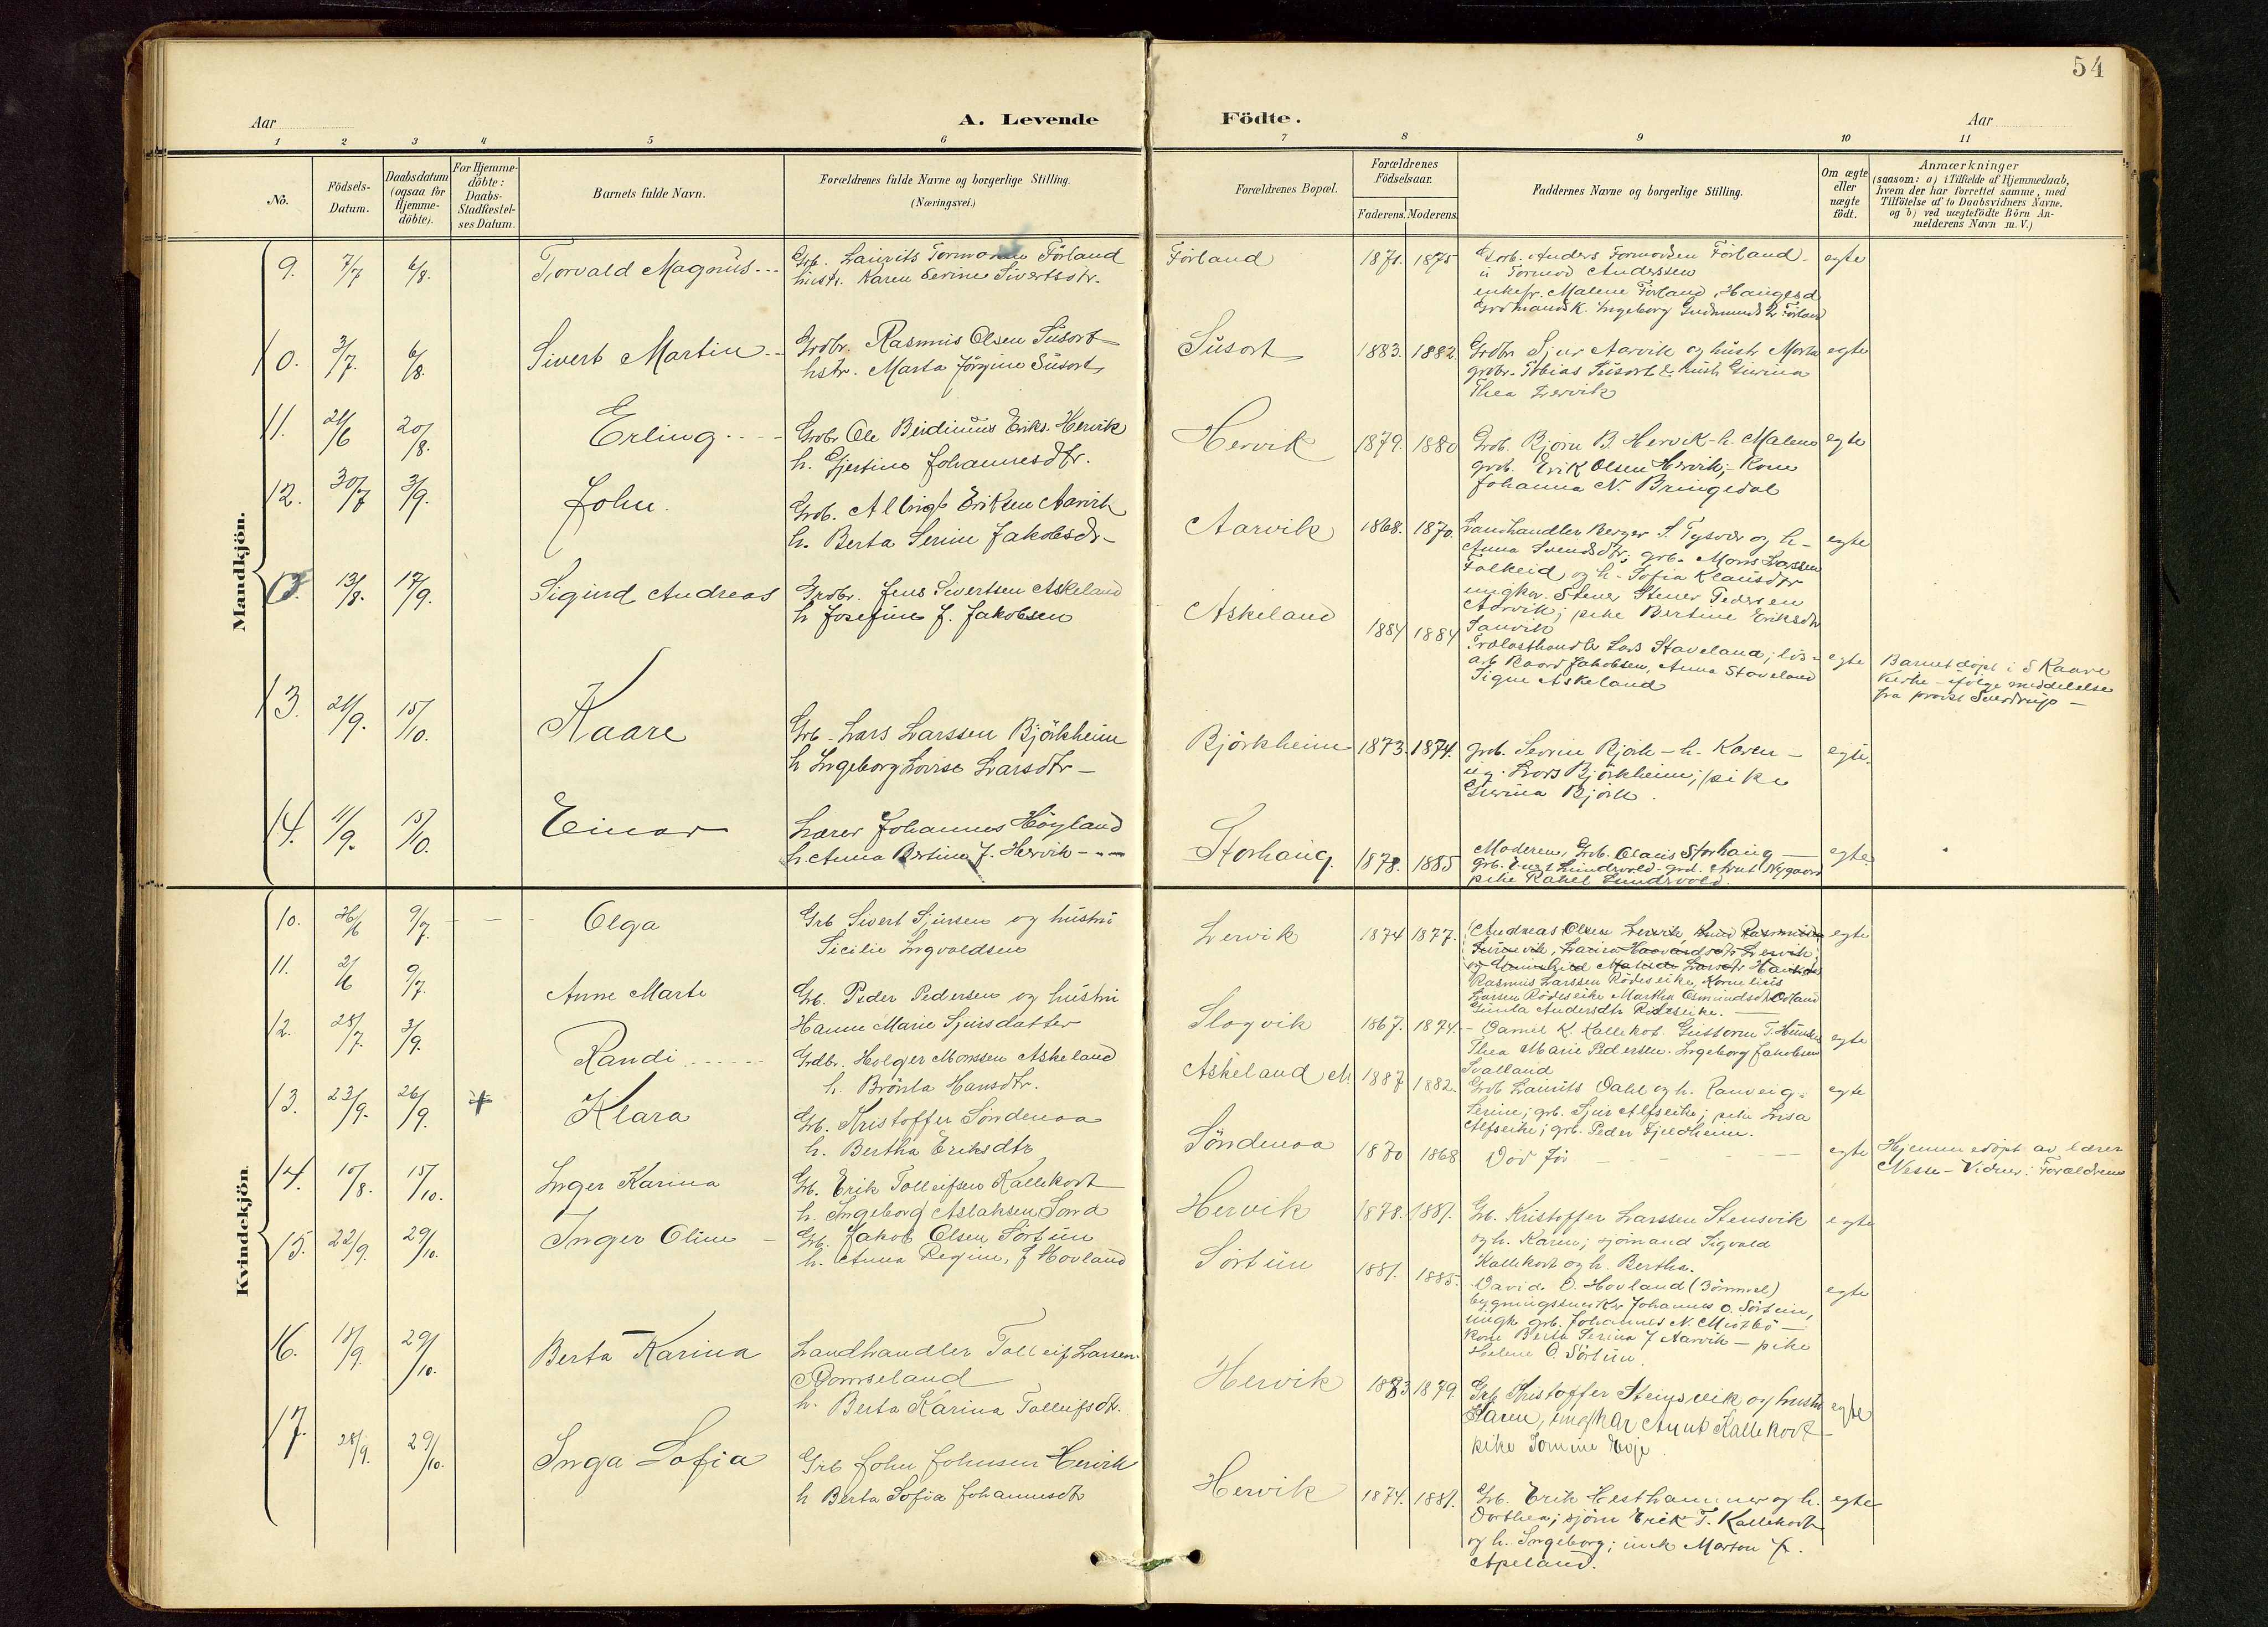 54
Aar
A. Levende
Födte.
Aar
1 2 3 4 5 6 7 8 9 10 11
No.
Födsels-
Datum.
Daabsdatum
(ogsaa for
Hjemme-
döbte).
For Hjemme-
döbte:
Daabs-
Stadfæstel-
ses Datum.
Barnets fulde Navn.
Forældrenes fulde Navne og borgerlige Stilling.
(Næringsvei.)
Forældrenes Bopæl.
Forældrenes
Födselsaar.
Faderens. Moderens.
Faddernes Navne og borgerlige Stilling.
Om ægte
eller
uægte
födt.
Anmærkninger
(saasom: a) i Tilfælde af Hjemmedaab,
hvem der har forrettet samme, med
Tilföielse af to Daabsvidners Navne,
og b) ved uægtefödte Börn An-
melderens Navn m. V.)
Mandkjön.
9. 7/7 6/8. Torvald Magnus
Grb. Laurits Förland
hustr. Karen Serine Sivertsdtr.
Förland 1871. 1875
Gorb. Anders Tormodsen Förland
u Tormod Anderssen
enkefr. Malene Förland, Haugesd
Grdmands k. Ingeborg Gudmunds Förland
egte
10. 3/7. 6/8. Sivert Martin
Grdbr. Rasmus Olsen Süsort
hstr. Marta Jörgine Süsort
Süsort 1883. 1882.
Grdbr Sjur Aarvik og hustr Marta
grdbr. Tobias Süsort & hustr Gurina
Thea Lervik
egte
11. 21/6 20/8. Erling
Grdbr Ole Berdinius Eriks. Hervik
h. Gjertine Johannesdtr.
Hervik 1879. 1880
Grb. Bjørn B Hervik - h. Malene
grb. Erik Olsen Hervik; - Kone
Johanna N. Bringedal
egte
12. 30/7 3/9. John.
Grb. Albrigt Eriksen Aarvik
h. Berta Serine Jakobsdr-
Aarvik 1868. 1870.
Landhandler Berger S. Tysvær og h-
Anna Svendsdtr; grb. Mons Larssen
Falkeid og h. Sofia Klausdtr
ungkar. Stener Stener Pedersen
Aarvik; pike Bertine Eriksdtr
Sanvik
egte
13/8. 17/9. Sigurd Andreas
Grdbr. Jens Sivertsen Askeland
h Josefine J. Jakobsen
Askeland 1884 1884
Trælasthandler Lars Staveland; lös-
arb Baard Jakobsen, Anna Staveland
Signe Askeland
egte
Barnet döpt i S Kaare
Kirke - ifölge meddelelse
fra provst Sverdrup -
13. 21/9. 15/10. Kaare
Grb. Lars Larssen Björkheim
h Ingeborg Lovise Larsdtr -
Björkheim 1873. 1874.
grb. Severin Bjørk - h. Karen -
ug. Lars Björkheim; pike
Gurina Bjørk.
egte.
14. 11/9. 15/10. Einar
Lærer Johannes Höyland
h. Anna Bertine J. Hervik - - -
Storhaug. 1878. 1885
Moderen, Grb. Olaus Storhaug
grb. Lundsvold - grd. Knut Nygaard
pike Rakel Lundsvold.
egte.
Kvindekjön.
10. 26/6 9/7. Olga
Grb Sivert Sjursen og hustru
Sicilie Ingvaldsen
Lervik 1874 1877.
(Andreas Olsen Lervik, Knud Rasmussen
Lervik;
og Matilde Larsdtr
Rasmus Larssen Rödeseike, Kornelius
Larsen Rödeseike Martha Osmundsdtr Odland
Gunla Andersdtr Rödeseike.
egte
11. 2/6 9/7. Anne Marte
Grb. Peder Pedersen og hustru
Hanne Marie Sjursdatter
Slogvik 1867. 1874.
Daniel K. Kallekot. Guttorm T.
Thea Marie Pedersen. Ingeborg Jakobsen
Svalland
egte
12. 28/7. 3/9. Randi
Grdbr. Holger Monssen Askeland
h. Brönla Hansdtr.
Askeland 1887 1882.
Grb Lauritz Dahl og h. Ranveig.
Serine; grb. Sjur Alfseike; pike Lisa
Alfseike; grb. Peder Fjeldheim.
egte
13. 23/9. 26/9. + Klara
Grb. Kristoffer Söndenaa
h. Bertha Eriksdtr
Söndenaa 1870 1868
Död för
egte
Hjemmedöpt av lærer
Nesse - Vidner: Forældrene
14. 10/8. 15/10. Inger Karina
Grb. Erik Tolleifsen Kallekodt
h. Ingeborg Aslaksen Sand
Hervik 1878. 1881.
Grb. Kristoffer Larssen Stensvik
og h. Karen; sjömand Sigvald
Kallekodt og h. Bertha.
egte
15. 22/9. 29/10. Inger Oline -
Grb. Jakob Olsen Sörtün
h. Anna Regine J Hovland
Sörtün 1881. 1885.
David O. Hovland (Bömmel)
bygningssnekker Johannes O. Sörtün,
ungk grb. Johannes N. Mustbö -
kone Berta Serina J Aarvik - pike
Helene O. Sörtün.
egte
16. 15/9. 29/10. Berta Karina
Landhandler Tolleif Larsen
Romseland
h. Berta Karina Tolleifsdtr.
Hervik 1883 1879.
Grb Kristoffer Steinsvik og hustru
Karen, ungkar Knut Kallekodt -
pike Tomine Evje
egte
17. 28/9. 29/10. Inga Sofia
Grb John Johnsen Hervik
h Berta Sofia Johannesdtr
Hervik 1874. 1881.
Grb. Erik Hesthammer og h.
Dorthea; sjöm Erik T. Kallekodt
og h. Ingeborg; Marton
Apeland.
egte